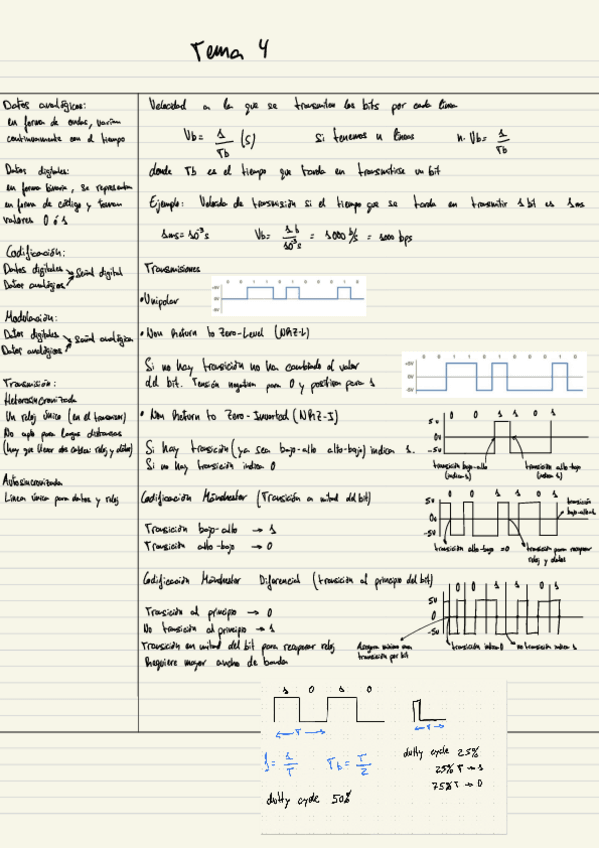 Tema 4
Datos analógicos:
en forma de ondas, varían
continuamente con el tiempo
Datos digitales:
en forma binaria, se representan
en forma de código y toman
valores 0 ó 1
Codificación:
Datos digitales
Datos analógicos
Señal digital
Modelación:
Datos digitales
Datos analógicos
Señal analógica
Transmisión:
Heterosincronizada
Un reloj único (en el transmisor)
No apto para largas distancias
(hay que llevar dos cables: reloj y datos)
Autosincronizada
Línea única para datos y reloj
Velocidad a la que se transmiten los bits por cada línea
Vb = 1/Tb (s) Si tenemos n líneas n·Vb = 1/Tb
donde Tb es el tiempo que tarda en transmitirse un bit
Ejemplo: Velocidad de transmisión si el tiempo que se tarda en transmitir 1 bit es 1ms
1ms = 10⁻³ s Vb = 1b/10⁻³s = 1000 b/s = 1000 bps
Transmisiones
• Unipolar
• Non Return to Zero-Level (NRZ-L)
Si no hay transición no ha cambiado el valor
del bit. Tensión negativa para 0 y positiva para 1
• Non Return to Zero-Inverted (NRZ-I)
Si hay transición (ya sea bajo-alto alto-bajo) indica 1.
Si no hay transición indica 0
5v
0v
-5v
0 0 1 1 0 1
transición bajo-alto
(indica 1)
transición alto-bajo
(indica 1)
Codificación Manchester (Transición a mitad del bit)
Transición bajo-alto → 1
Transición alto-bajo → 0
5v
0v
-5v
0 0 1 1 0 1
transición
bajo-alto=1
transición alto-bajo =0
transición para recuperar
reloj y datos
Codificación Manchester Diferencial (transición al principio del bit)
Transición al principio → 0
No transición al principio → 1
Transición en mitad del bit para recuperar reloj
Requiere mayor ancho de banda
5v
0v
-5v
0 0 1 1 0 1
Asegura mínimo una
transición por bit
transición indica 0
no transición indica 1
1 0 1 0
T
T
f = 1/T Tb = T/2
dutty cycle 50%
dutty cycle 25%
25% T → 1
75% T → 0